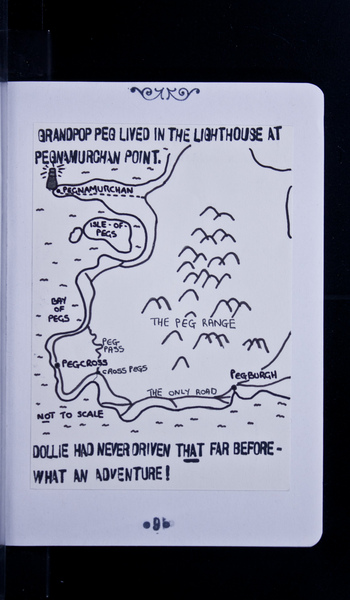 GRANDPOP PEG LIVED IN THE LIGHTHOUSE AT
PEGNAMURCHAN POINT.
PEGNAMURCHAN
ISLE-OF-
PEGS
BAY
OF
PEGS
THE PEG RANGE
PEG
PASS
PEGCROSS
CROSS PEGS
PEGBURGH
THE ONLY ROAD
NOT TO SCALE
DOLLIE HAD NEVER DRIVEN THAT FAR BEFORE-
WHAT AN ADVENTURE!